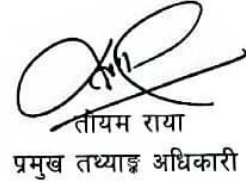 तोयम राया
प्रमुख तथ्याङ्क अधिकारी